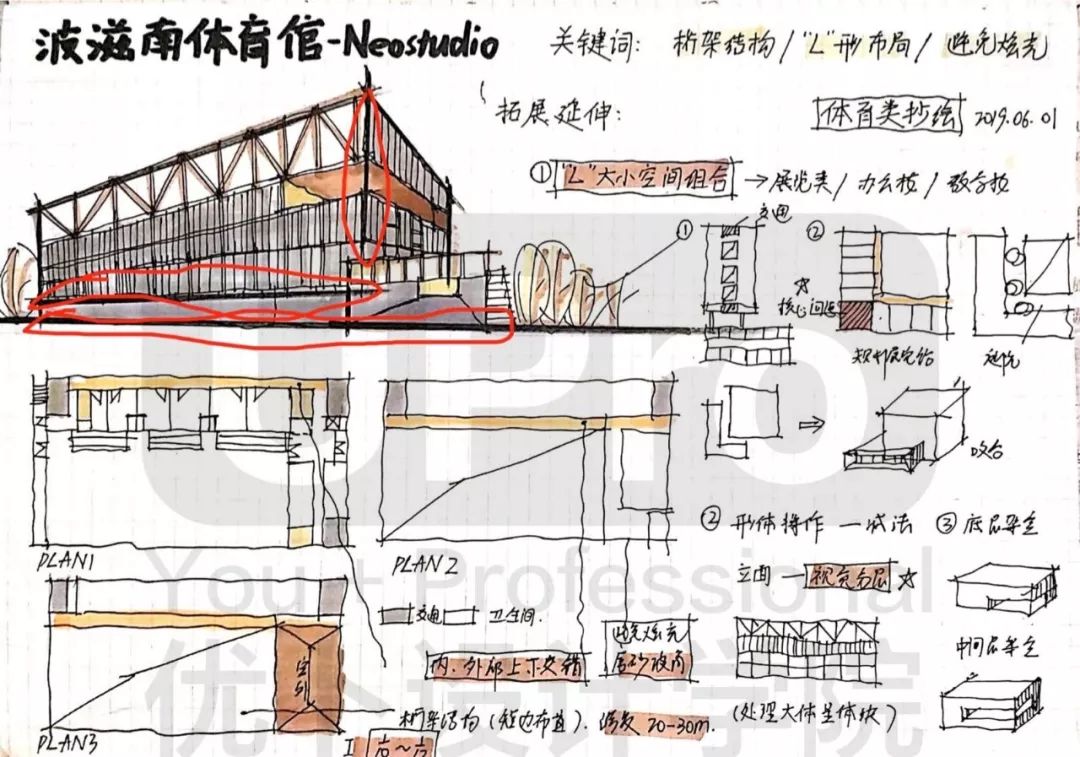 波滋南体育馆-Neostudio
关键词: 桁架结构/"L"形布局/避免炫光
拓展延伸:
体育类抄绘 2019.06.01
① "L"大小空间组合 → 展览类/办公楼/教学楼
交通
① ②
核心问题
规划展览馆
庭院
咬合
② 形体操作 — 减法 ③ 底层架空
立面 — 视觉分层
中间层架空
(处理大体量体块)
PLAN1
PLAN2
PLAN3
交通 卫生间.
内、外部上下交错
避免炫光
磨砂玻璃
空洞
桁架结构(短边布置). 跨度 20-30m.
UPro
You + Professional
优个设计学院